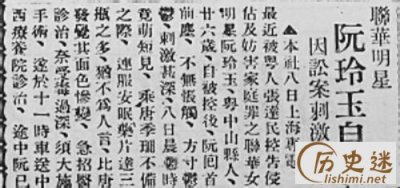 聯華明星
阮玲玉自
因訟案刺激
▲本社八日上海專電
最近被舉人張達民控告侵
佔及妨害家庭罪之聯華女
明星阮玲玉、粵中山縣人、
廿六歲、自被控後、阮囘首
前塵、不無悵觸、方寸鬱
鬱、刺激甚深、八日晨鬱時
竟萌短見、乘唐季珊不備
之際、連服安眠藥片達三
瓶之多、猶不爲人言、比唐
發覺其面色慘變、急招醫
診治、奈受毒過深、須大施
手術、遂於十一時車送中
西療養院診治、途中阮已
历史迷
lishimi.net